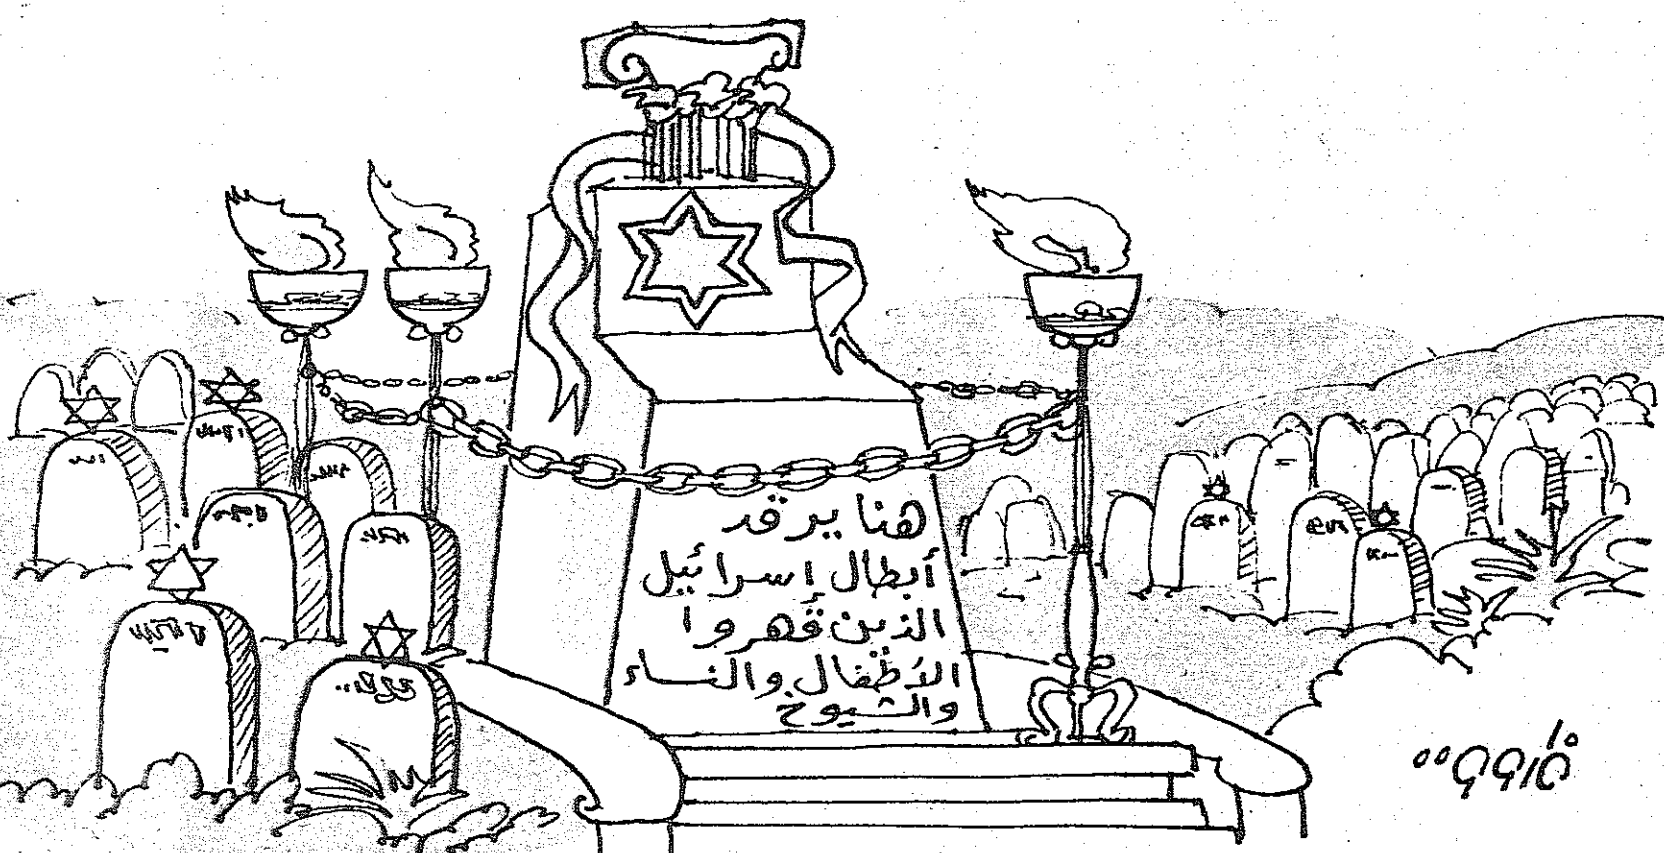 هنا يرقد
أبطال إسرائيل
الذين قهروا
الأطفال والنساء
والشيوخ